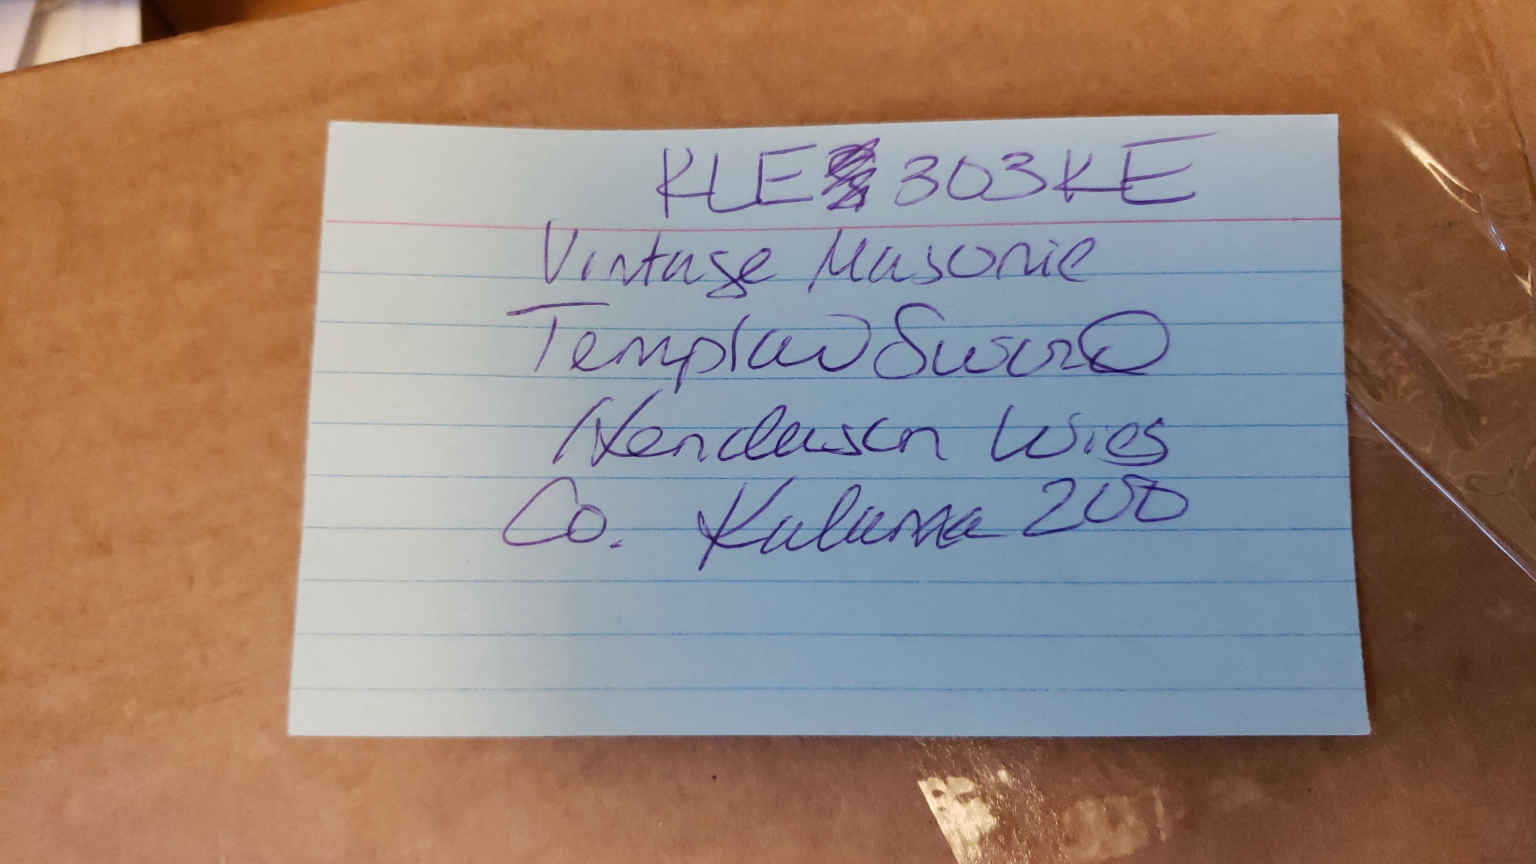 KLE 303KE
Vintage Masonic
Templar Sword
Henderson
Co. Kalama 200